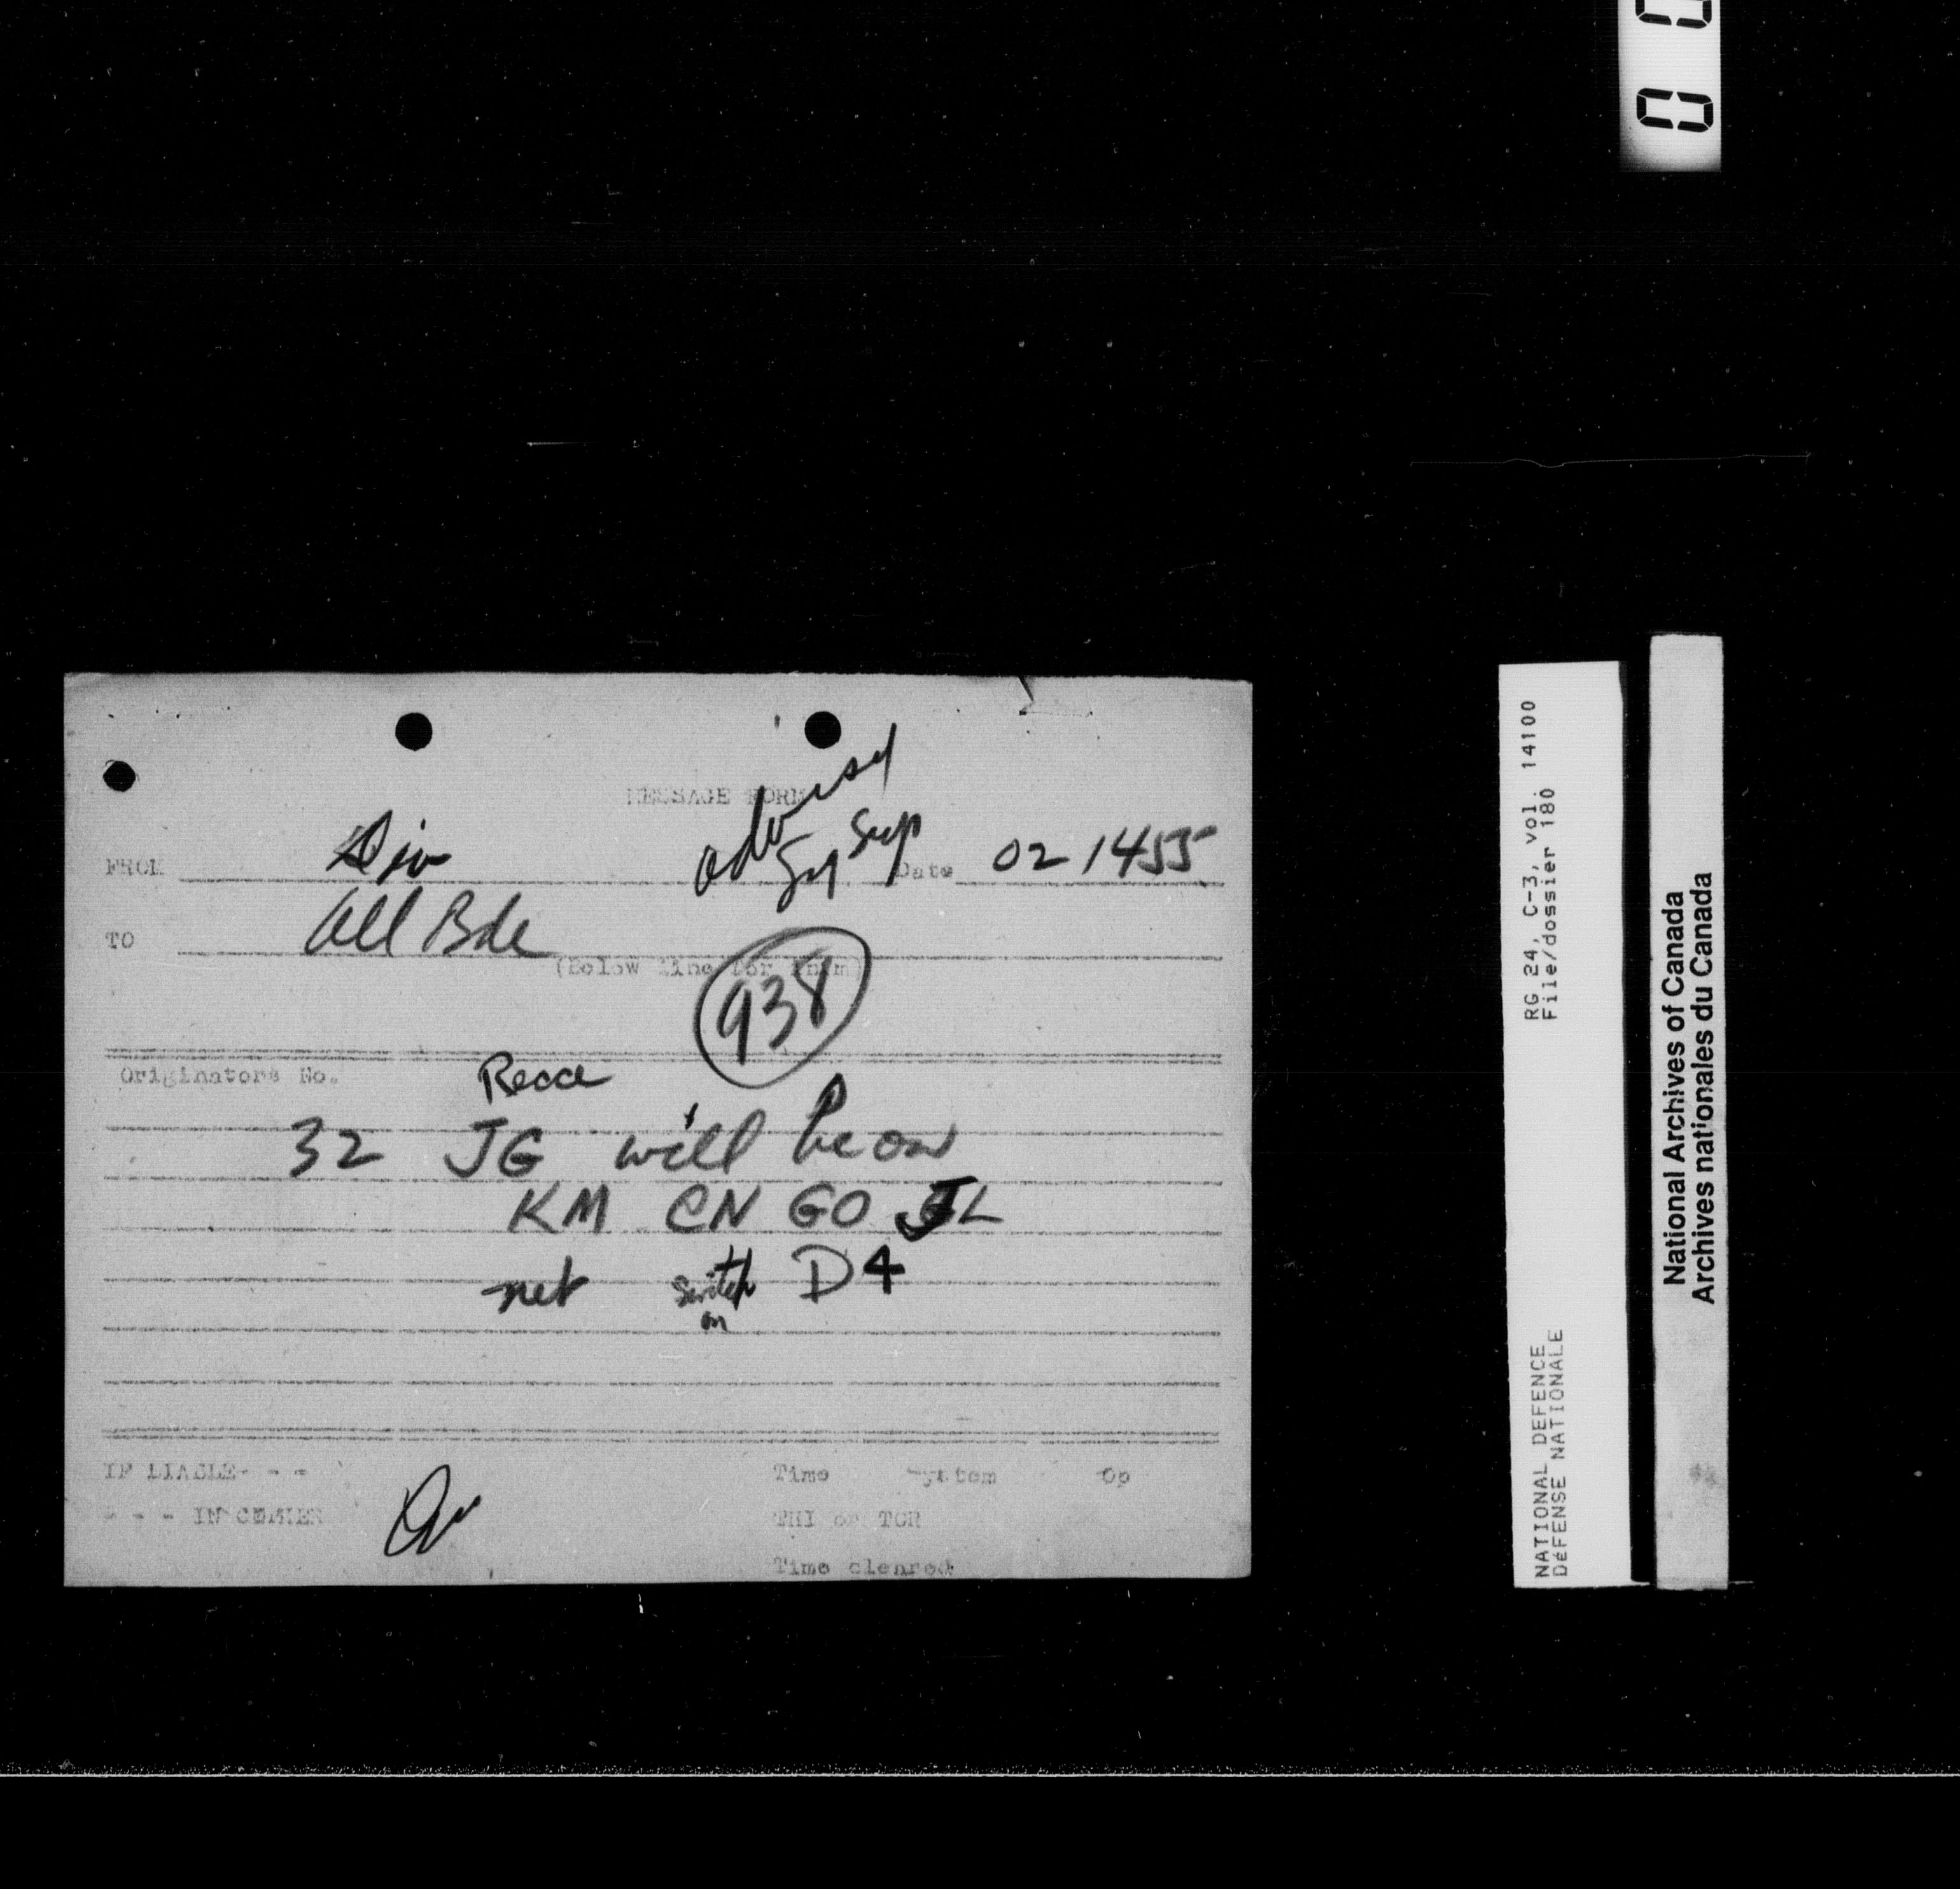 0 0
MESSAGE FORM
advised
Syl Sup
FROM Div Date 02 1455
TO All Bde
(Below line for
938
Originators No.
Recce
32 JG will be on
KM CN GO JL
net switch D4
on
Time System Op
THI or TOR
Time cleared
RG 24, C-3, vol. 14100
File/dossier 180
NATIONAL DEFENCE
DéFENSE NATIONALE
National Archives of Canada
Archives nationales du Canada